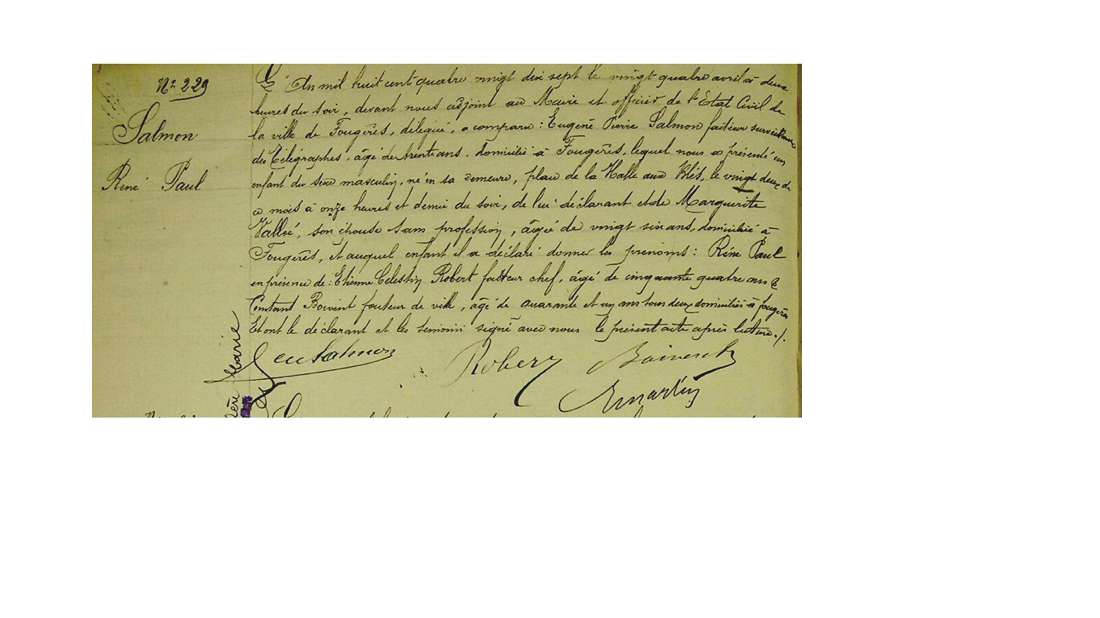 Nº 229
Salmon
René Paul
L'An mil huit cent quatre vingt dix sept le vingt quatre avril à deux
heures du soir, devant nous adjoint au Maire et officier de l'Etat Civil de
la ville de Fougères, délégué, a comparu : Eugène Pierre Salmon facteur surveillant
des Télégraphes, âgé de trente ans, domicilié à Fougères, lequel nous a présenté un
enfant du sexe masculin, né en sa demeure, place de la Halle aux Blés, le vingt deux de
ce mois à onze heures et demie du soir, de lui déclarant et de Marguerite
Vallée, son épouse sans profession, âgée de vingt six ans, domiciliée à
Fougères, et auquel enfant il a déclaré donner les prénoms : René Paul
en présence de : Etienne Célestin Robert facteur chef, âgé de cinquante quatre ans &
Constant Boivent facteur de ville, âgé de quarante et un ans tous deux domiciliés à Fougères
Et ont le déclarant et les témoins signé avec nous le présent acte après lecture ./.
Salmon Robert Boivent
Martin
Marie